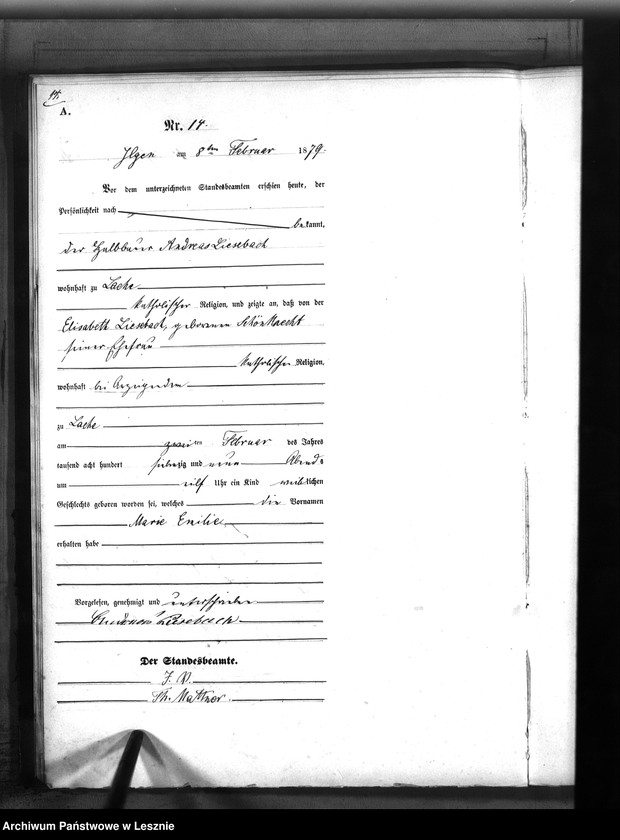 14.
A.
Nr. 14.
Ilgen am 8ten Februar 1879.
Vor dem unterzeichneten Standesbeamten erschien heute, der
Persönlichkeit nach
bekannt,
der Halbbauer Andreas Liesebach
wohnhaft zu Lache
katholischer Religion, und zeigte an, daß von der
Elisabeth Liesebach, geborenen Schönknecht
seiner Ehefrau
katholischer Religion,
wohnhaft bei Anzeigendem
zu Lache
am zweiten Februar des Jahres
tausend acht hundert siebenzig und neun Abends
um eilf Uhr ein Kind weiblichen
Geschlechts geboren worden sei, welches die Vornamen
Marie Emilie
erhalten habe
Vorgelesen, genehmigt und unterschrieben
Andreas Liesebach
Der Standesbeamte.
J. V.
Th. Mattner.
Archiwum Państwowe w Lesznie